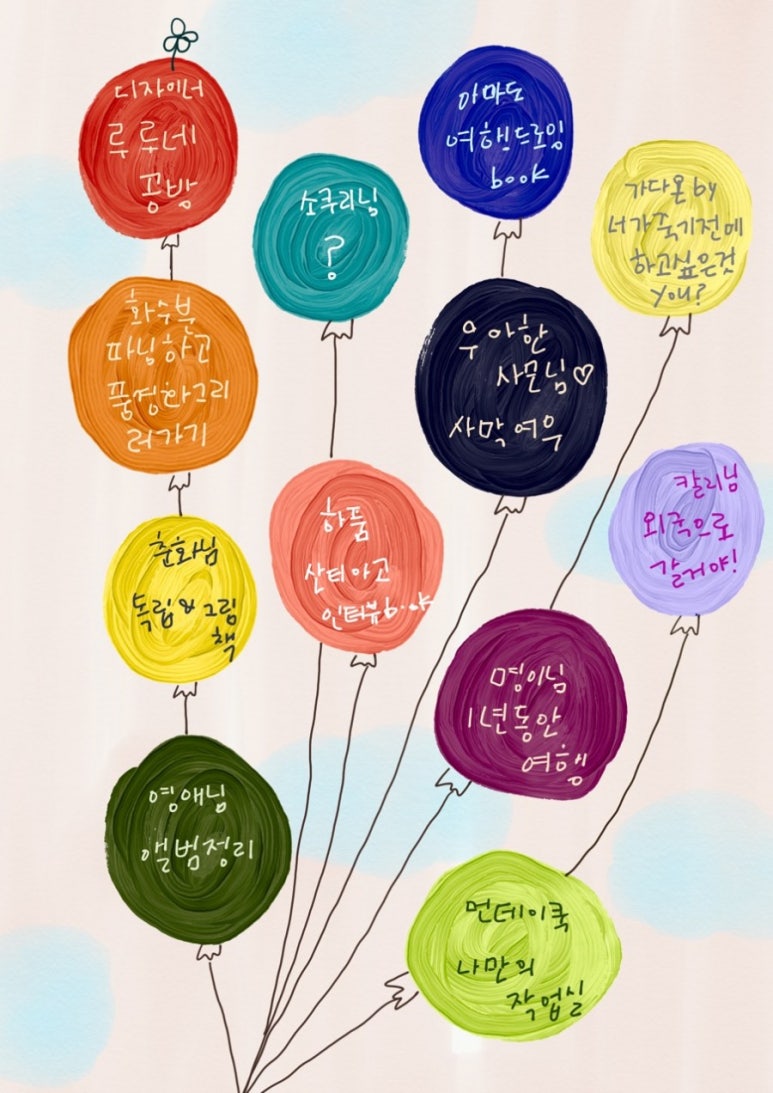 디자이너
루루네
공방
아마도
여행드로잉
book
소쿠리님
?
가다온 by
너가 죽기전에
하고싶은것
you?
화수분
파닝하고
풍경화그리
러가기
우아한
사모님♡
사막여우
칼리님
외국으로
갈거야!
하품
산티아고
인터뷰book
춘화님
독립&그림
책
명이님
1년동안
여행
영애님
앨범정리
먼데이쿡
나만의
작업실